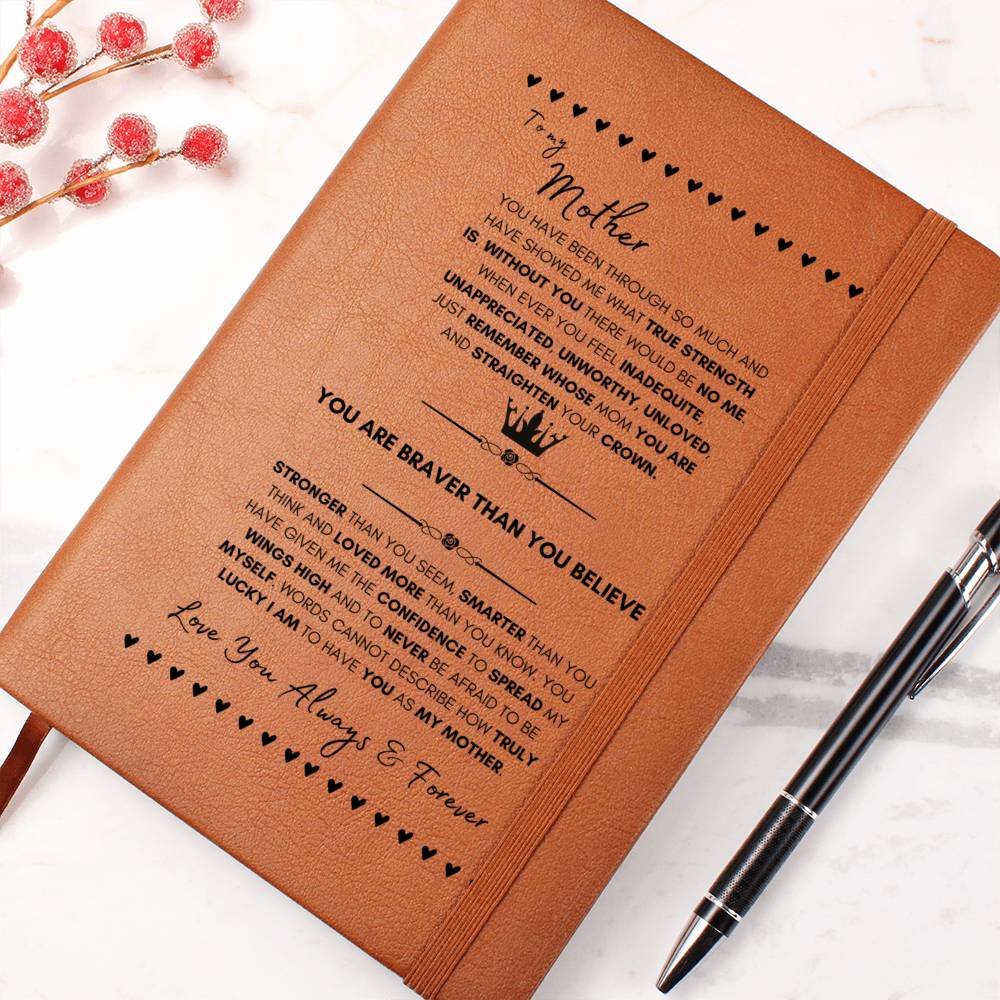 To my
Mother
YOU HAVE BEEN THROUGH SO MUCH AND
HAVE SHOWED ME WHAT TRUE STRENGTH
IS, WITHOUT YOU THERE WOULD BE NO ME.
WHEN EVER YOU FEEL INADEQUITE,
UNAPPRECIATED, UNWORTHY, UNLOVED,
JUST REMEMBER WHOSE MOM YOU ARE
AND STRAIGHTEN YOUR CROWN.
YOU ARE BRAVER THAN YOU BELIEVE
STRONGER THAN YOU SEEM, SMARTER THAN YOU
THINK AND LOVED MORE THAN YOU KNOW. YOU
HAVE GIVEN ME THE CONFIDENCE TO SPREAD MY
WINGS HIGH AND TO NEVER BE AFRAID TO BE
MYSELF. WORDS CANNOT DESCRIBE HOW TRULY
LUCKY I AM TO HAVE YOU AS MY MOTHER.
Love You Always & Forever